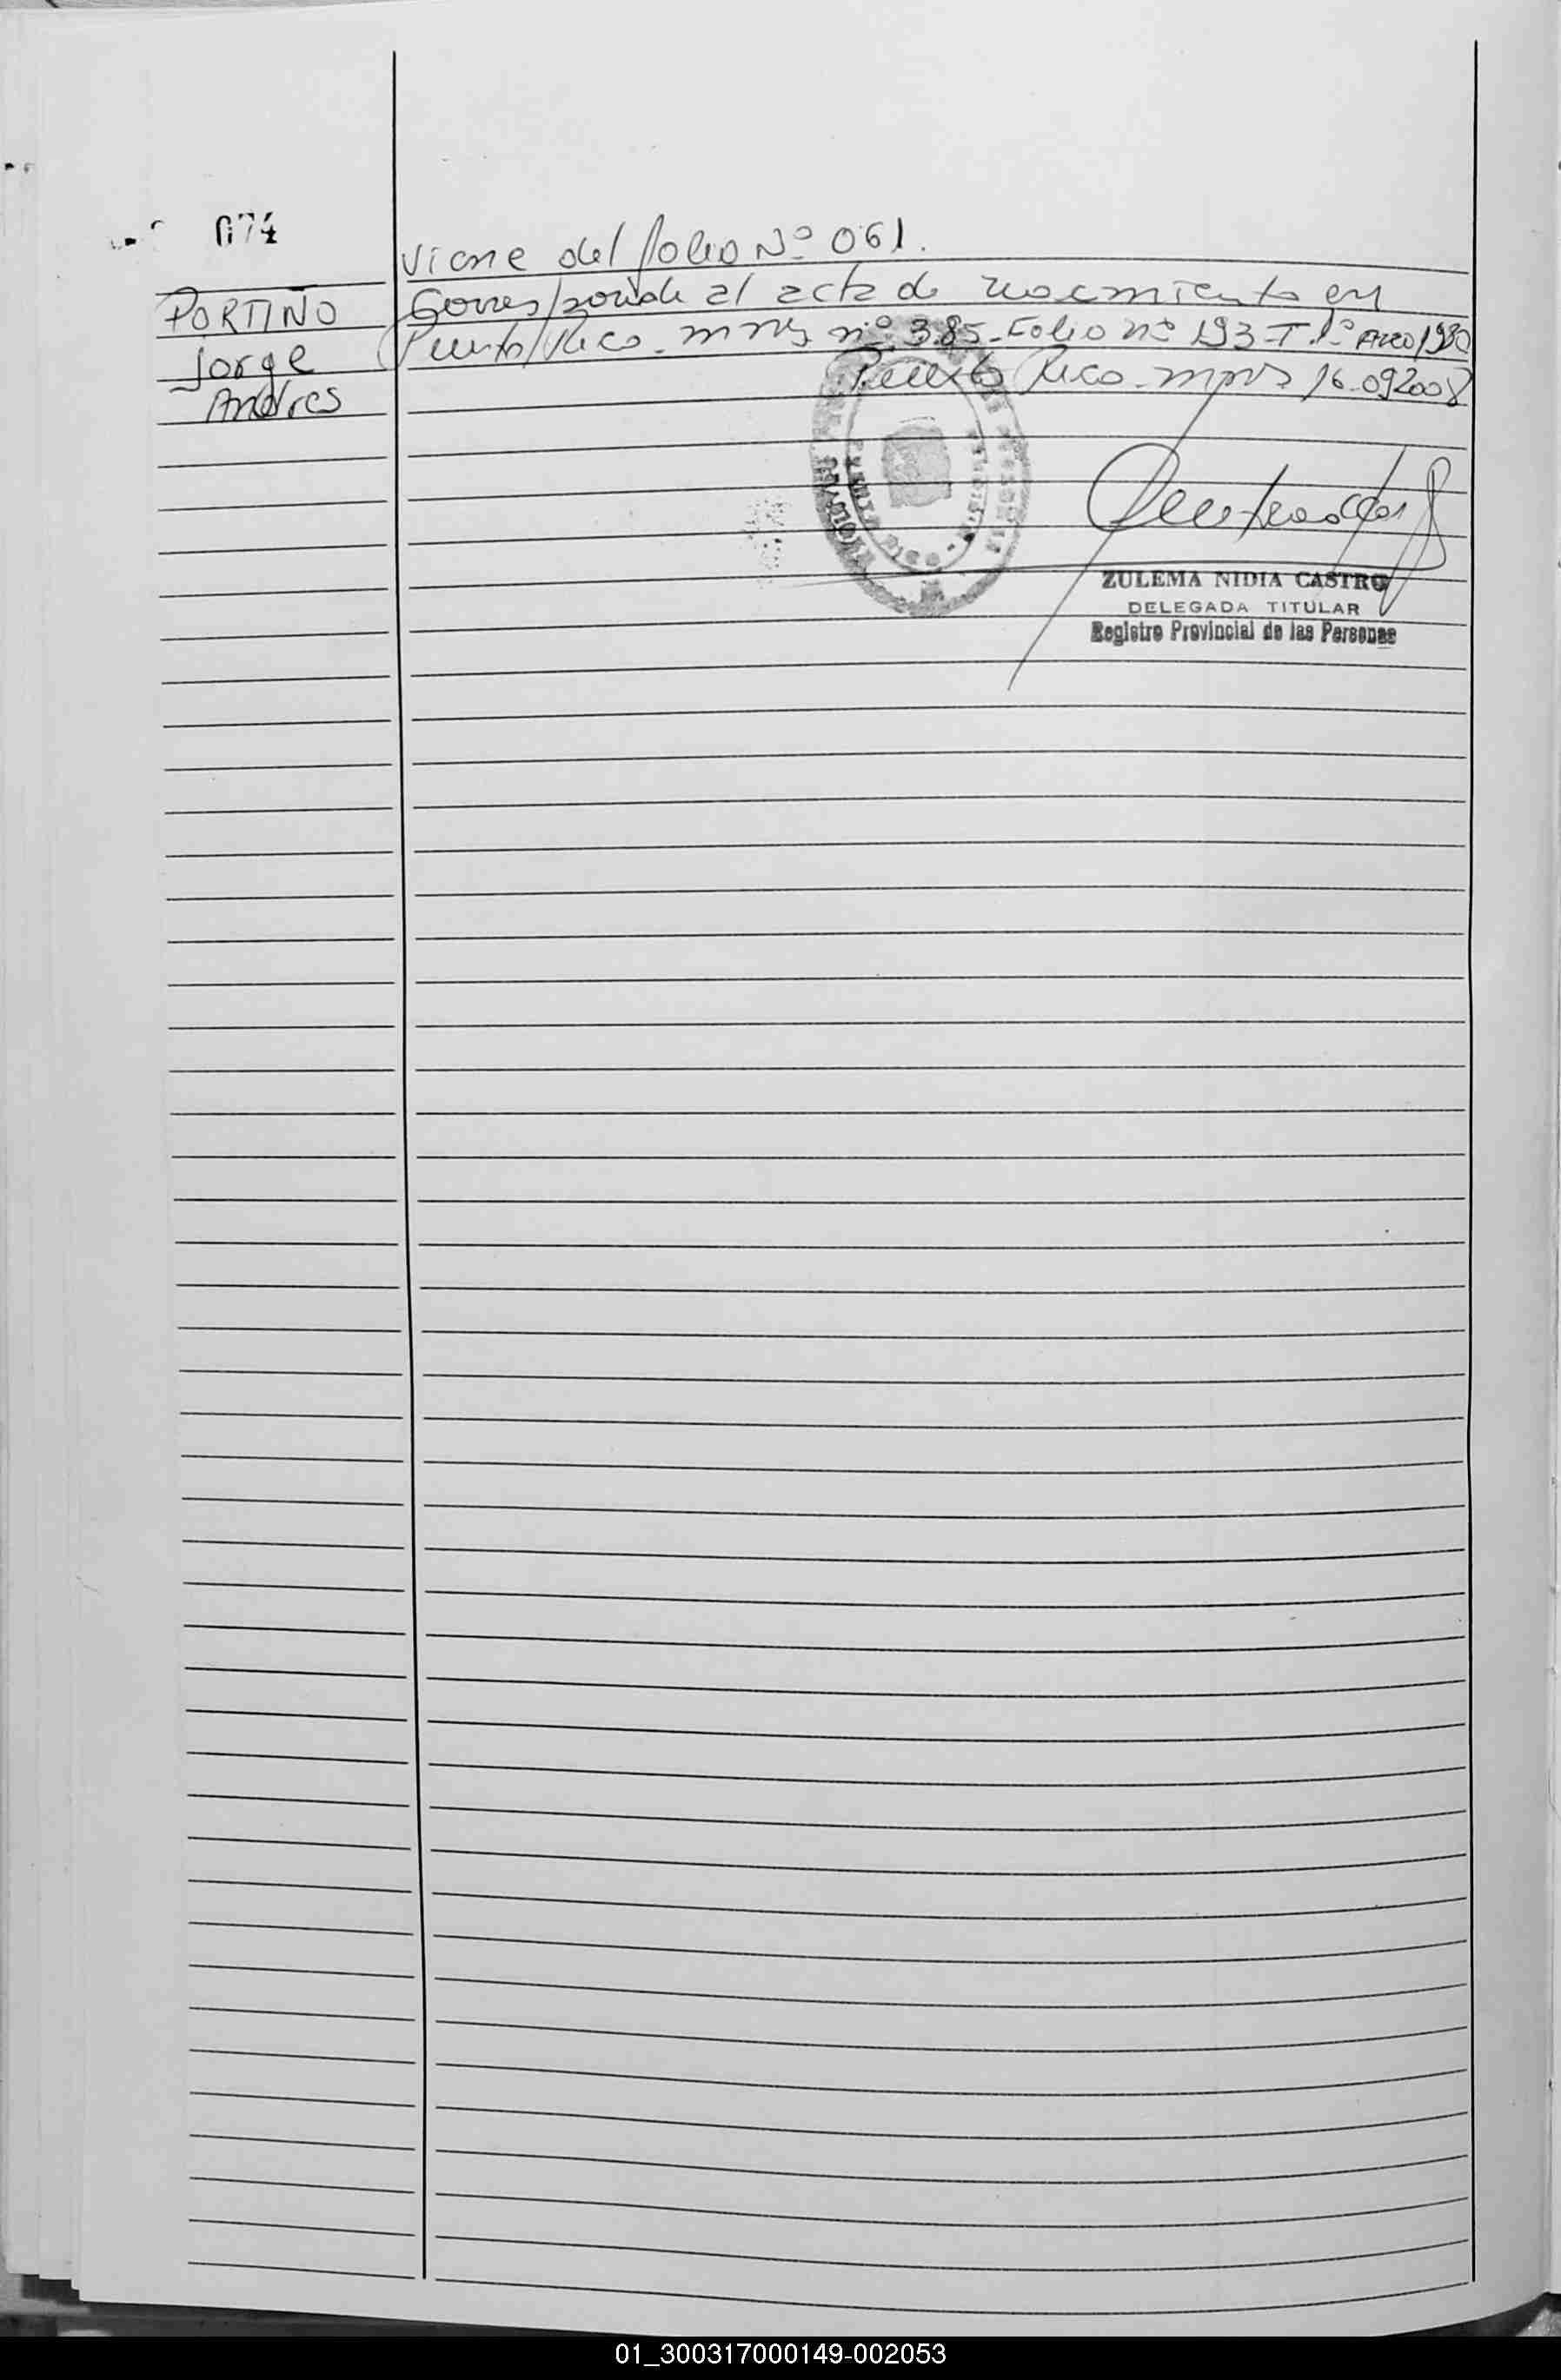 074
Viene del folio Nº 061.
PORTIÑO
Jorge
Andres
Corresponde al acta de nacimiento en
Puerto Rico. mnes nº 385- Folio nº 193-T.1º Año 1980
Puerto Rico. mnes 16-092008
PUERTO RICO
ZULEMA NIDIA CASTRO
DELEGADA TITULAR
Registro Provincial de las Personas
01_300317000149-002053